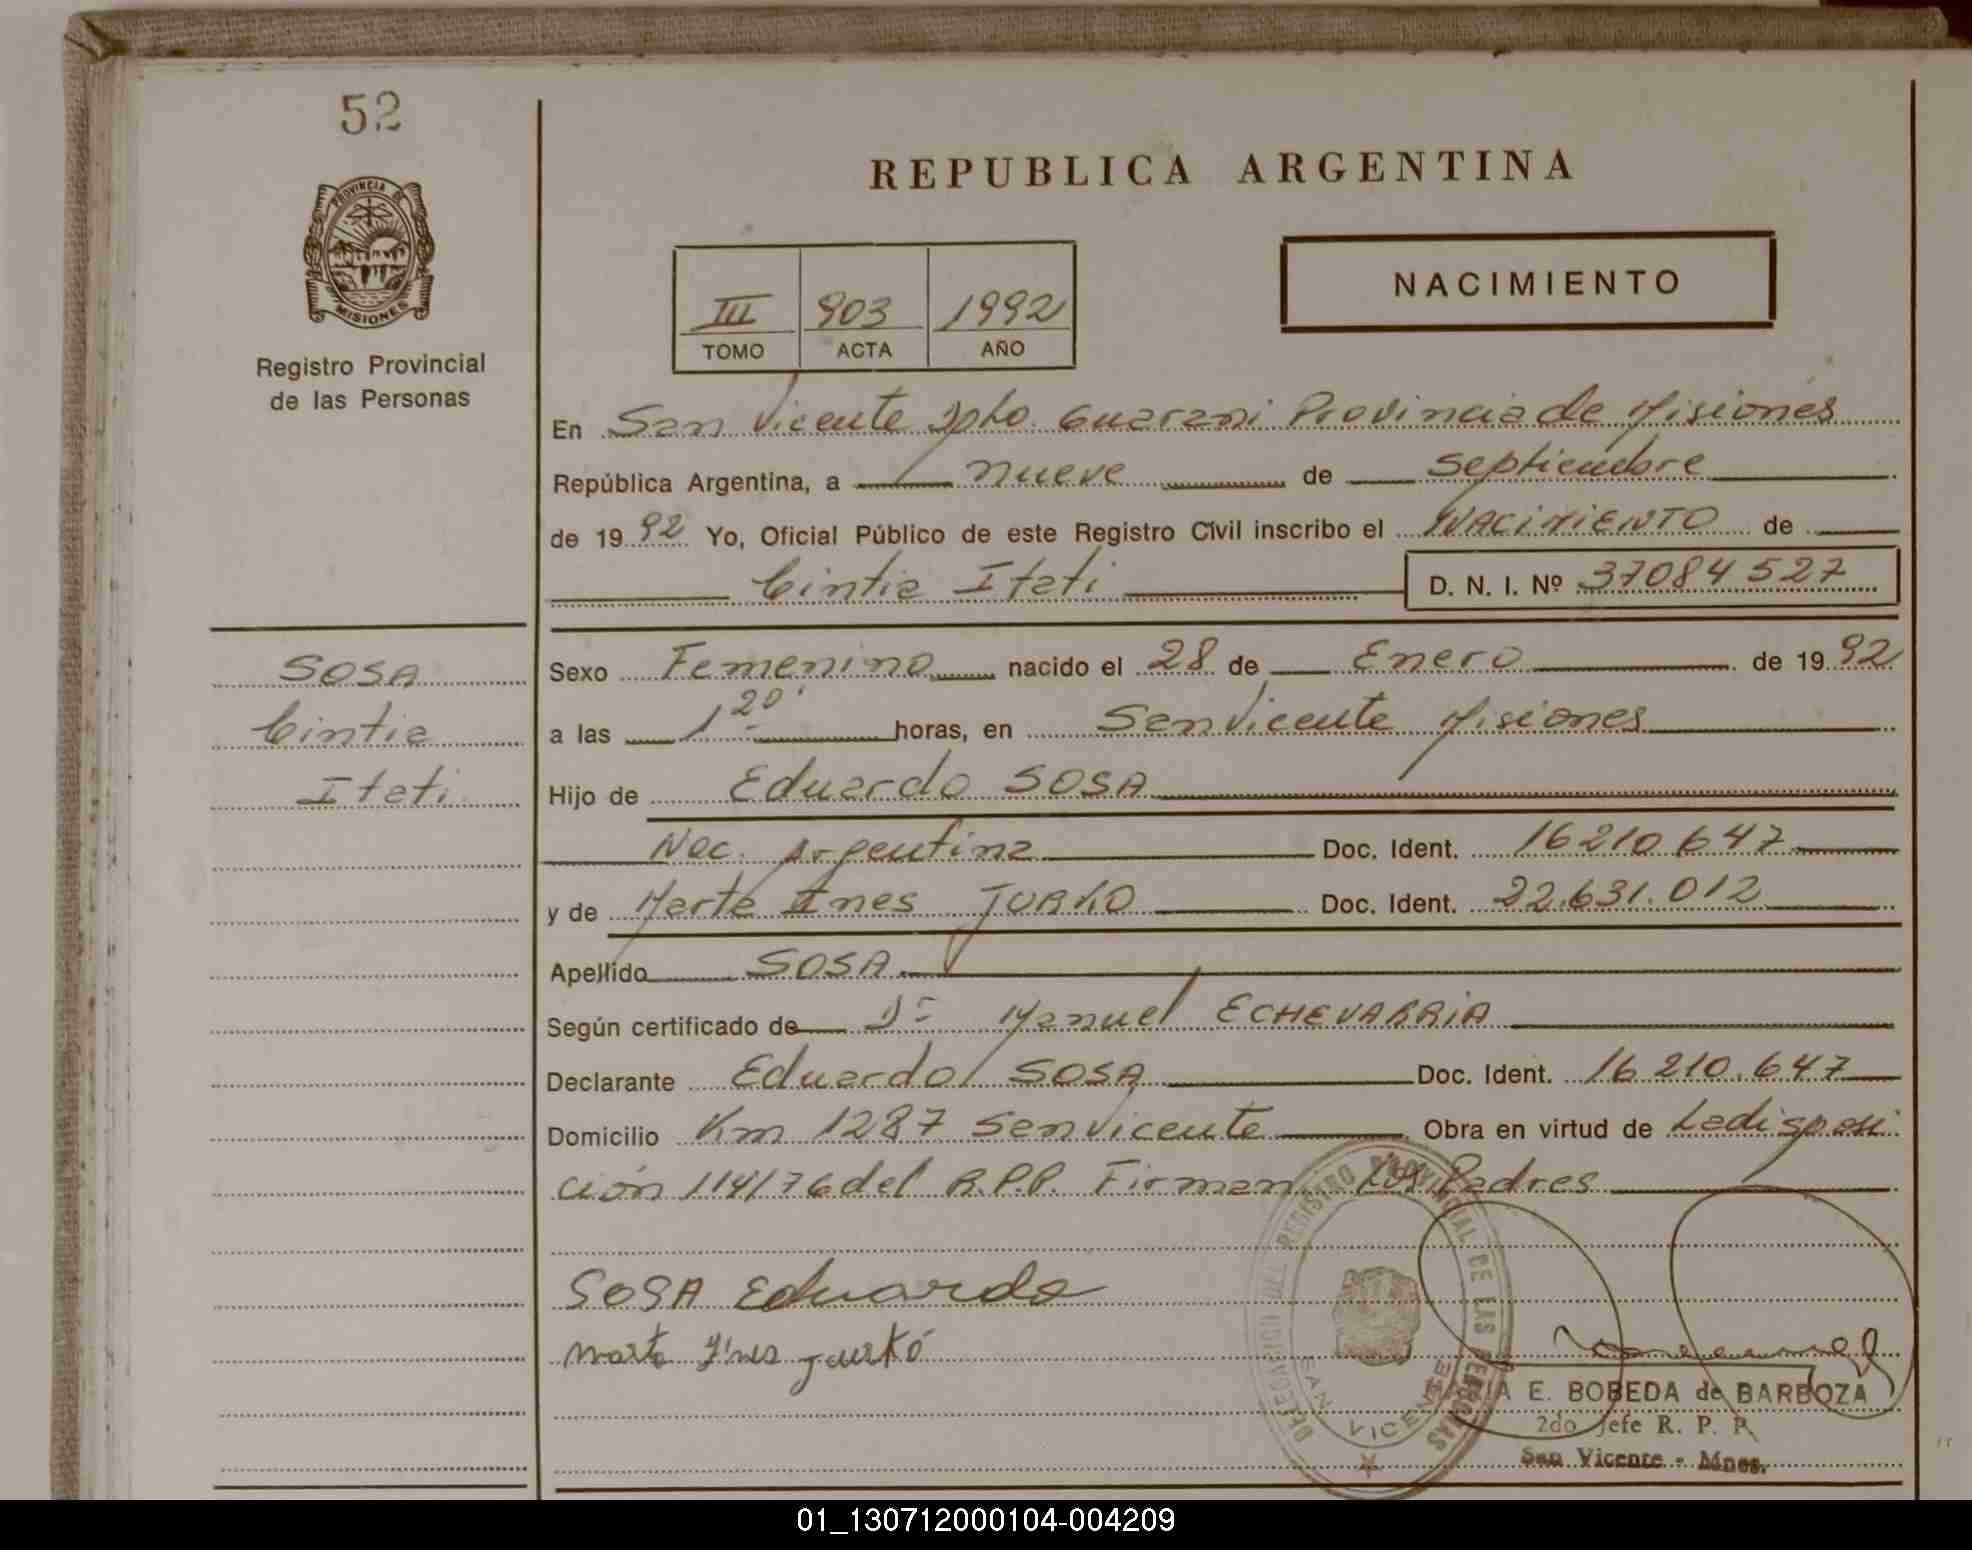 52
PROVINCIA DE
MISIONES
Registro Provincial
de las Personas
REPUBLICA ARGENTINA
III 903 1992
TOMO ACTA AÑO
NACIMIENTO
En San Vicente Dpto. Guarani Provincia de Misiones
República Argentina, a nueve de septiembre
de 1992 Yo, Oficial Público de este Registro Civil inscribo el NACIMIENTO de
Cintia Itati D. N. I. Nº 37084527
SOSA
Cintia
Itati
Sexo Femenino nacido el 28 de Enero de 1992
a las 1 20' horas, en San Vicente Misiones
Hijo de Eduardo SOSA
Nac. Argentina Doc. Ident. 16210647
y de Marta Ines JURKO Doc. Ident. 22.631.012
Apellido SOSA
Según certificado de Dr Manuel ECHEVARRIA
Declarante Eduardo SOSA Doc. Ident. 16210.647
Domicilio Km 1287 San Vicente Obra en virtud de La disposi
ción 114/76 del R.P.P. Firman Los Padres
SOSA Eduardo
Marta Ines Jurkó
DELEGACION DEL REGISTRO PROVINCIAL DE LAS PERSONAS
SAN VICENTE
E. BOBEDA de BARBOZA
2do Jefe R. P. P.
San Vicente - Mnes.
01_130712000104-004209